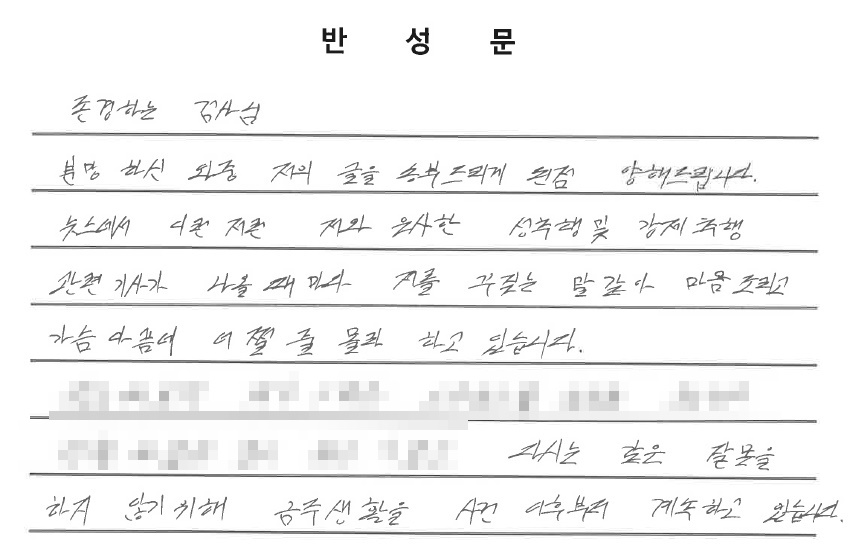 반 성 문
존경하는 검사님
분망 하신 와중 저의 글을 송부드리게 된점 양해드립니다.
뉴스에서 이런 저런 저와 유사한 성추행 및 강제 추행
관련 기사가 나올 때 마다 저를 꾸짖는 말 같아 마음 조리고
가슴 아픔에 어쩔 줄 몰라 하고 있습니다.
다시는 같은 잘못을
하지 않기 위해 금주생활을 사건 이후부터 계속하고 있습니다.